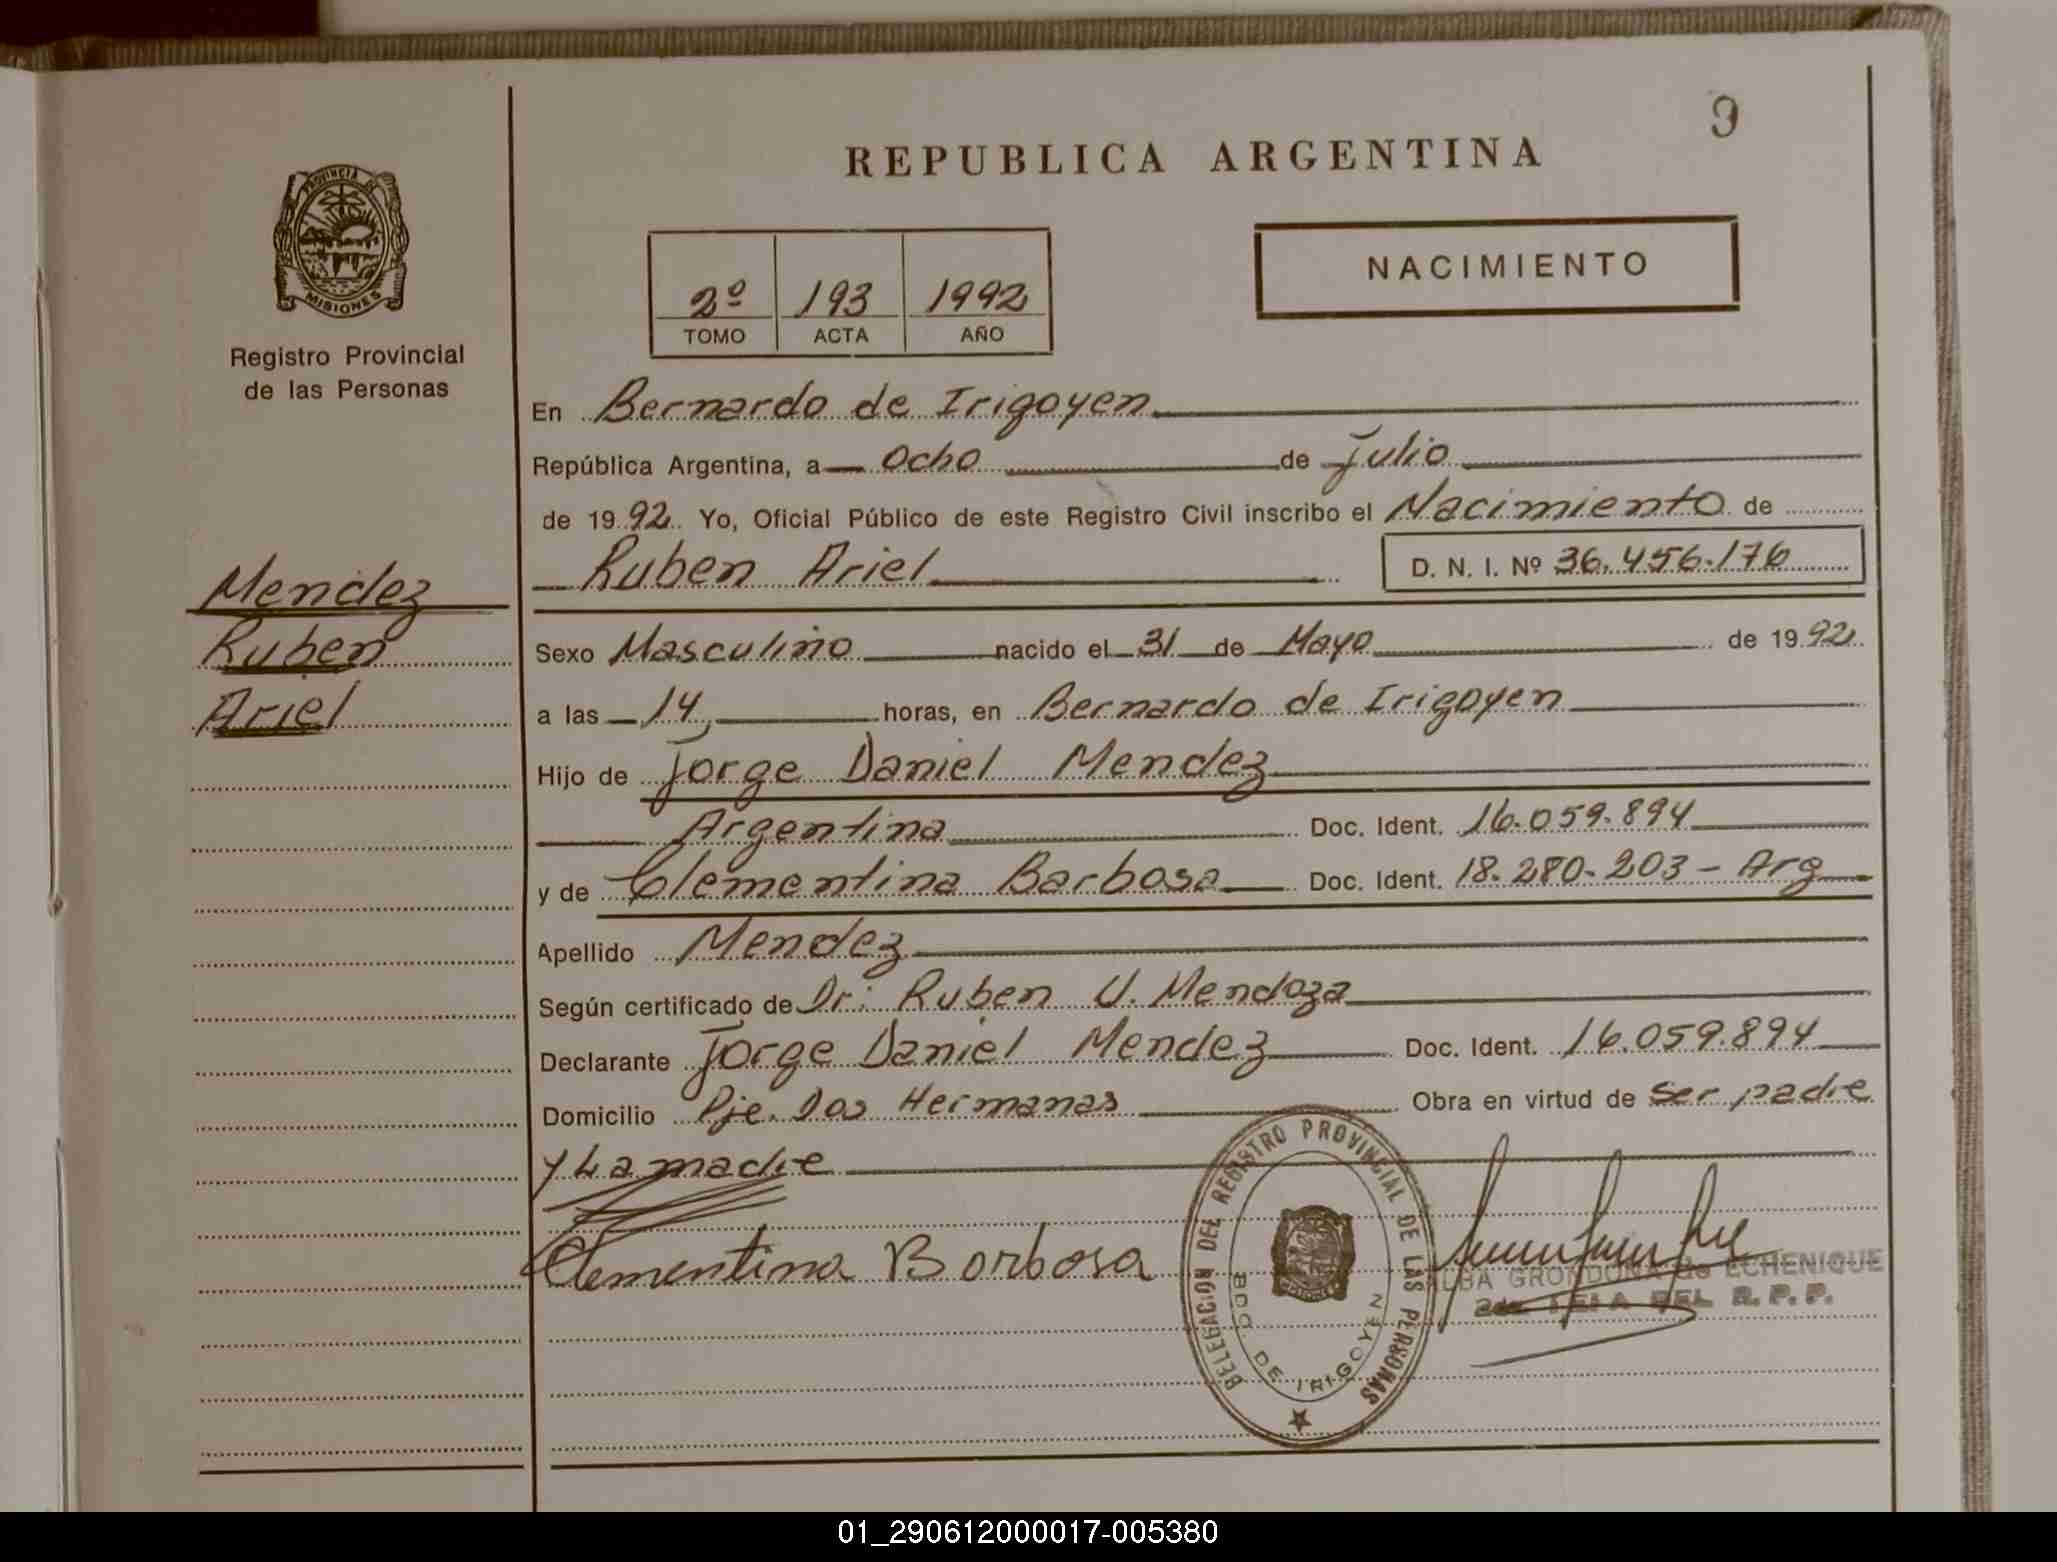 9
REPUBLICA ARGENTINA
PROVINCIA DE
MISIONES
Registro Provincial
de las Personas
NACIMIENTO
2º 193 1992
TOMO ACTA AÑO
En Bernardo de Irigoyen
República Argentina, a Ocho de Julio
de 1992. Yo, Oficial Público de este Registro Civil inscribo el Nacimiento de
Ruben Ariel D. N. I. Nº 36.456.176
Mendez
Ruben
Ariel
Sexo Masculino nacido el 31 de Mayo de 1992
a las 14, horas, en Bernardo de Irigoyen
Hijo de Jorge Daniel Mendez
Argentina Doc. Ident. 16.059.894
y de Clementina Barbosa Doc. Ident. 18.280.203 - Arg
Apellido Mendez
Según certificado de Dr: Ruben U. Mendoza
Declarante Jorge Daniel Mendez Doc. Ident. 16.059.894
Domicilio Pje. Dos Hermanas Obra en virtud de ser padre
y La madre
Clementina Borbosa
DELEGACION DEL REGISTRO PROVINCIAL DE LAS PERSONAS
BDO DE IRIGOYEN
ALBA GRONDONA de ECHENIQUE
DEL R. P. P.
01_290612000017-005380